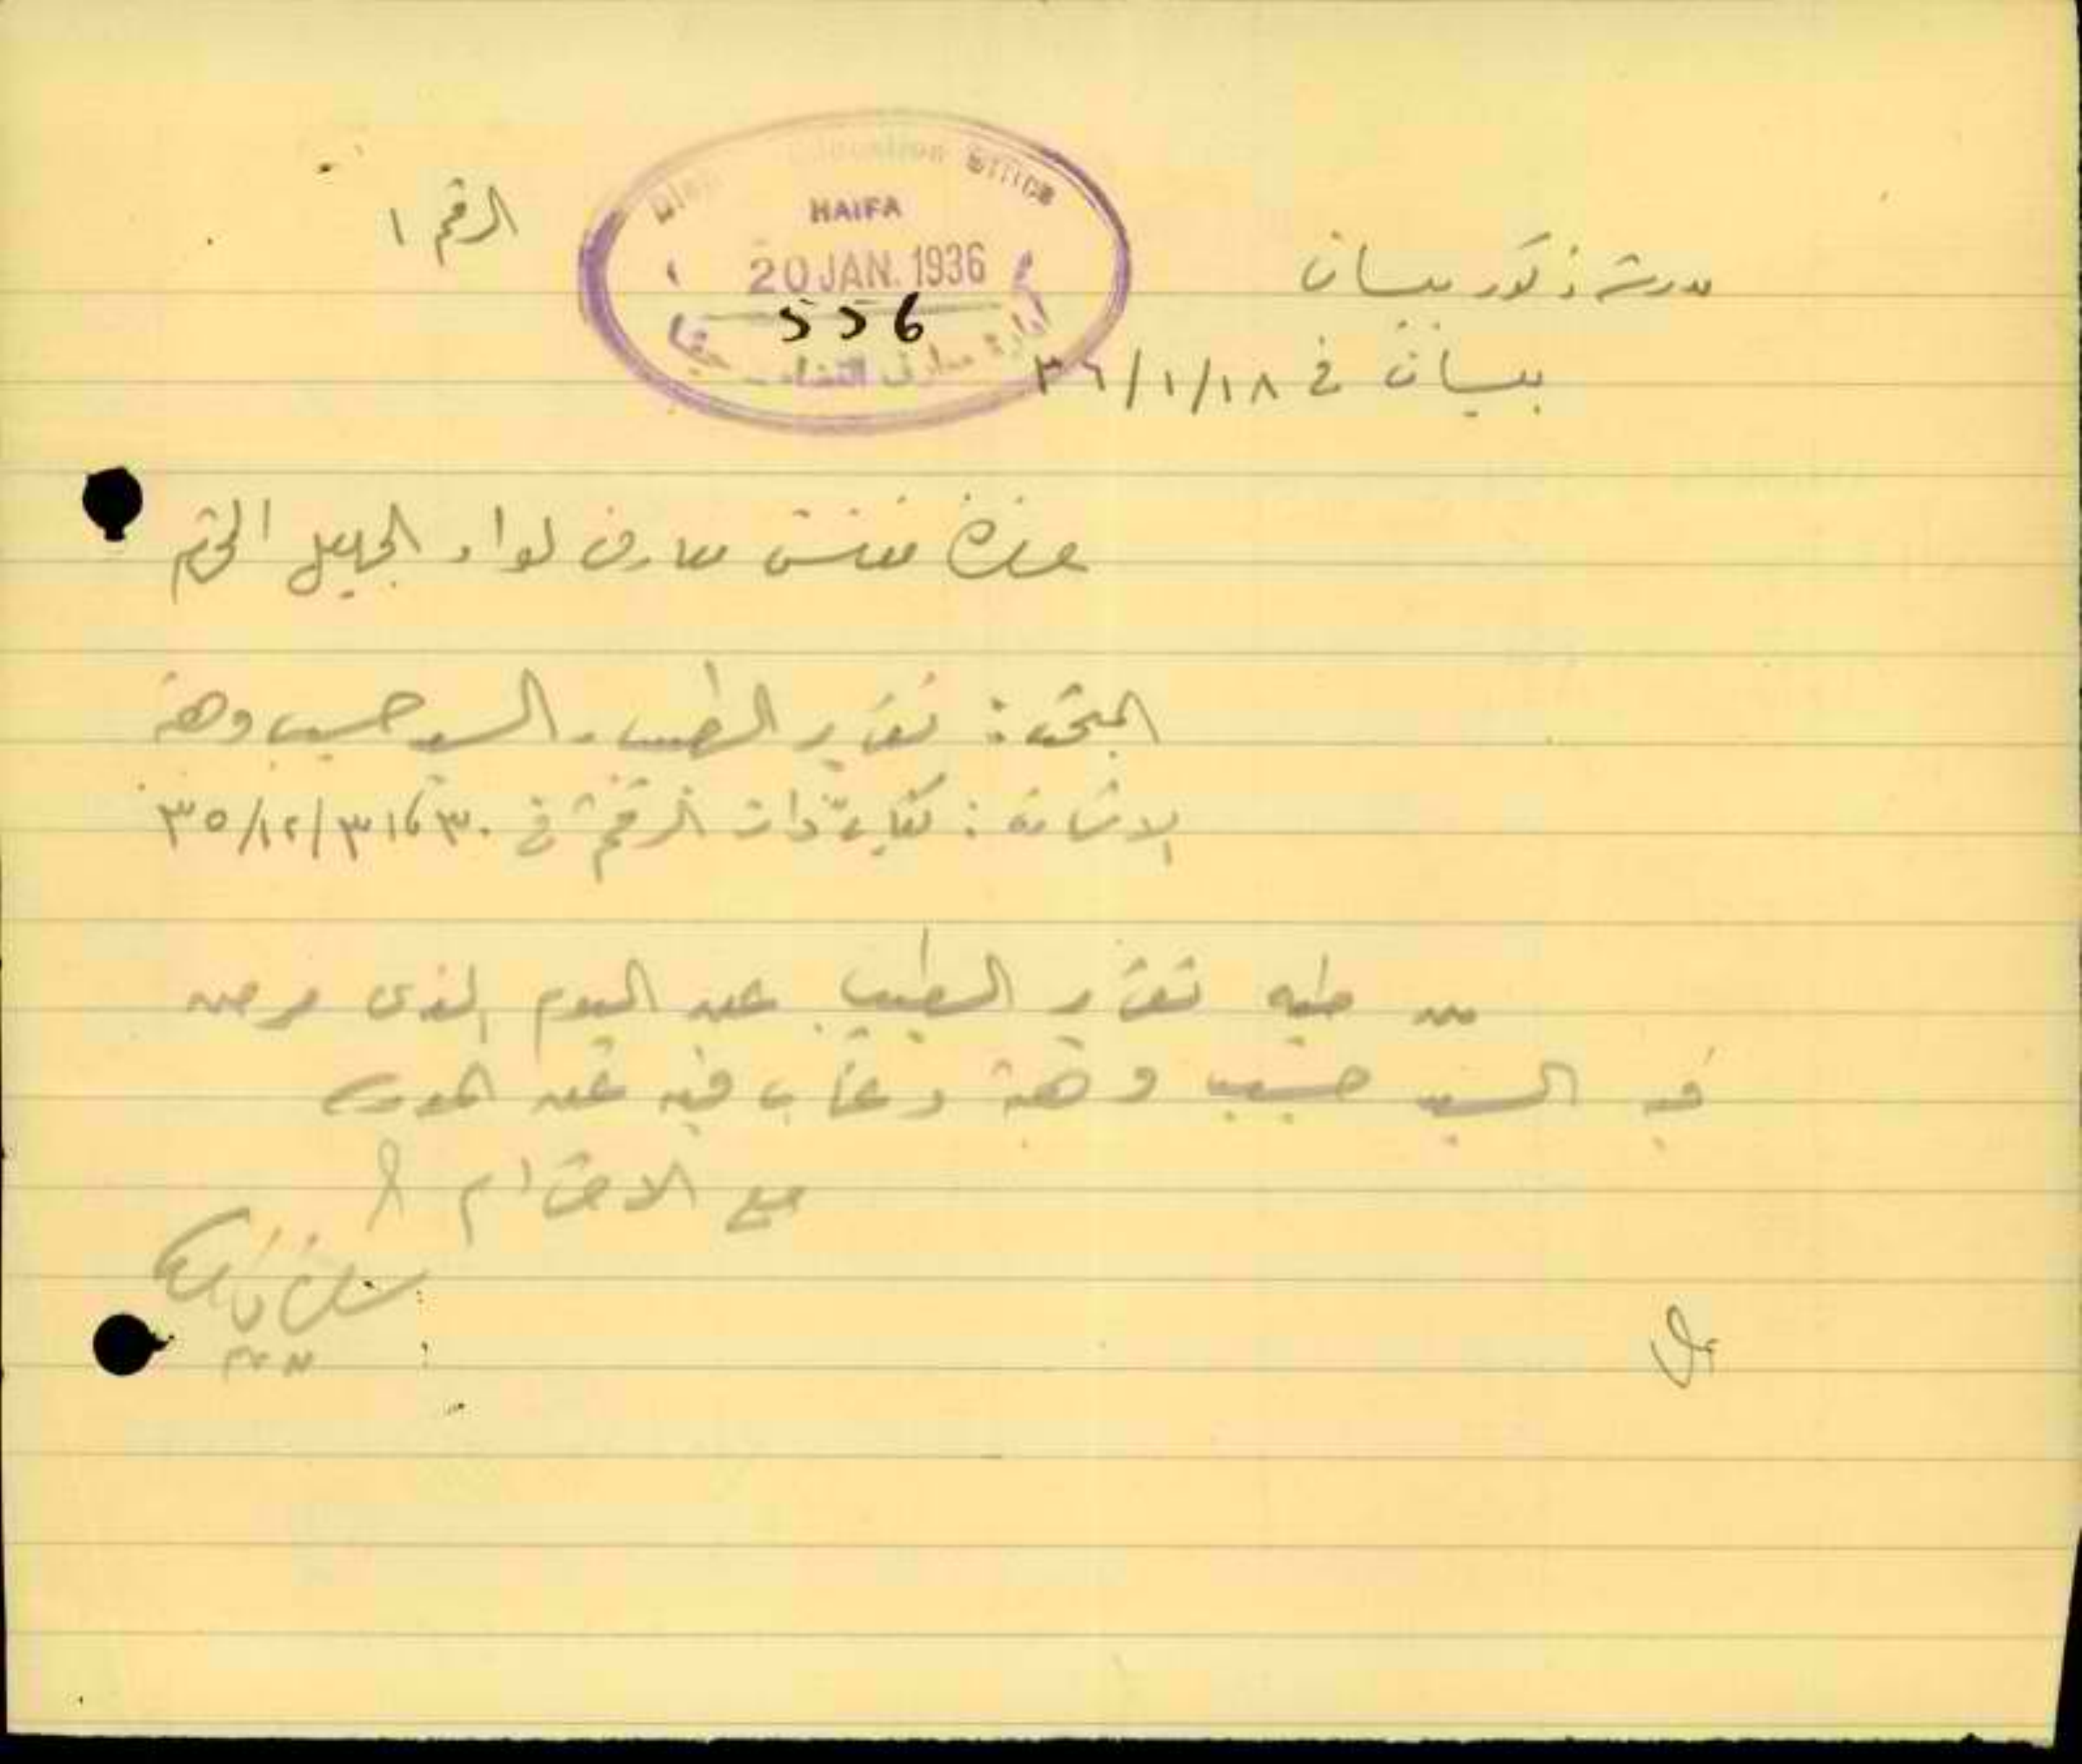 الرقم ١
District Education Office
HAIFA
20 JAN. 1936
556
ادارة معارف القضاء حيفا
مدرسة ذكور بيسان
بيسان في ٣٦/١/١٨
حضرة مفتش معارف لواء الجليل المحترم
المبحث: تقرير الطبيب السيد حسيب وهبة
الاشارة: ذات الرقم في ٣٥/١٢/٣١
طيه تقرير الطبيب عن اليوم الذي مرض
فيه السيد حسيب وهبة وغاب فيه عن المدرسة
مع الاحترام